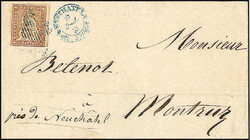 Monsieur
Betenot
à
Montruz
près de Neuchatel